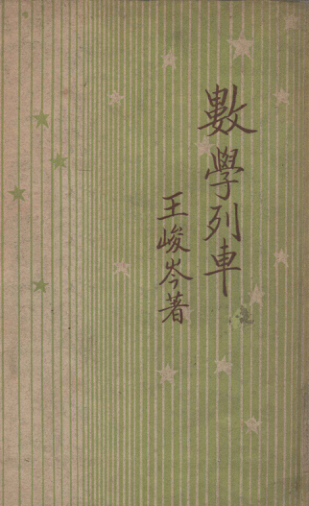 數學列車
王峻岑著